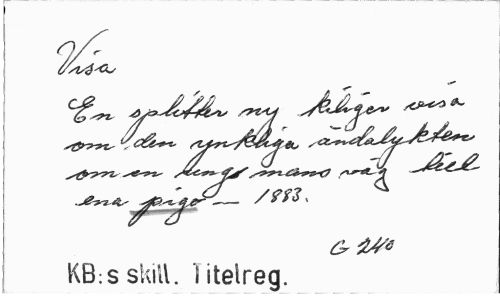 Visa
En splitter ny kiliger visa
om den ynkliga ändalykten
om en ungs mans väg teel
ena pigo — 1883.
G 240
KB:s skill. Titelreg.